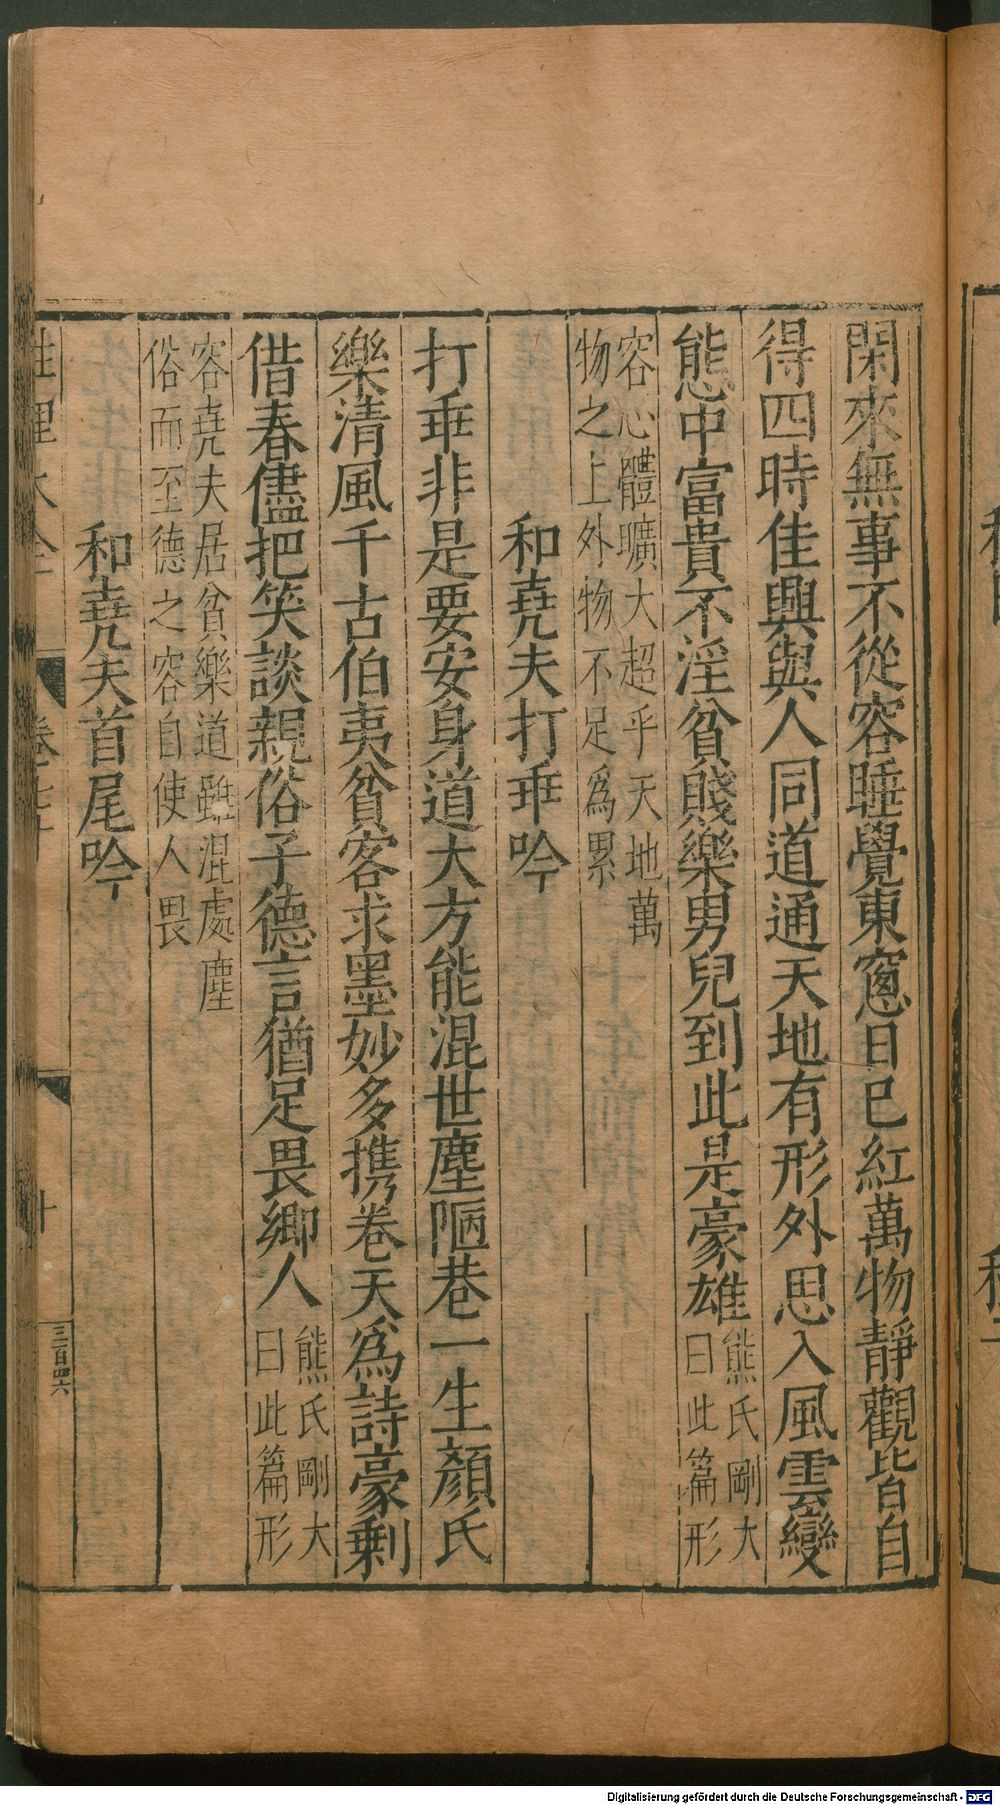 閑來無事不從容睡覺東窻日已紅萬物靜觀皆自
得四時佳興與人同道通天地有形外思入風雲變
態中富貴不淫貧賤樂男兒到此是豪雄
熊氏剛大
曰此篇形
容心體曠大超乎天地萬
物之上外物不足爲累
和堯夫打乖吟
打乖非是要安身道大方能混世塵陋巷一生顏氏
樂清風千古伯夷貧客求墨妙多携卷天爲詩豪剩
借春儘把笑談親俗子德言猶足畏鄉人
熊氏剛大
曰此篇形
容堯夫居貧樂道雖混處塵
俗而至德之容自使人畏
和堯夫首尾吟
性理大全
卷七十
十
三百四六
Digitalisierung gefördert durch die Deutsche Forschungsgemeinschaft - DFG